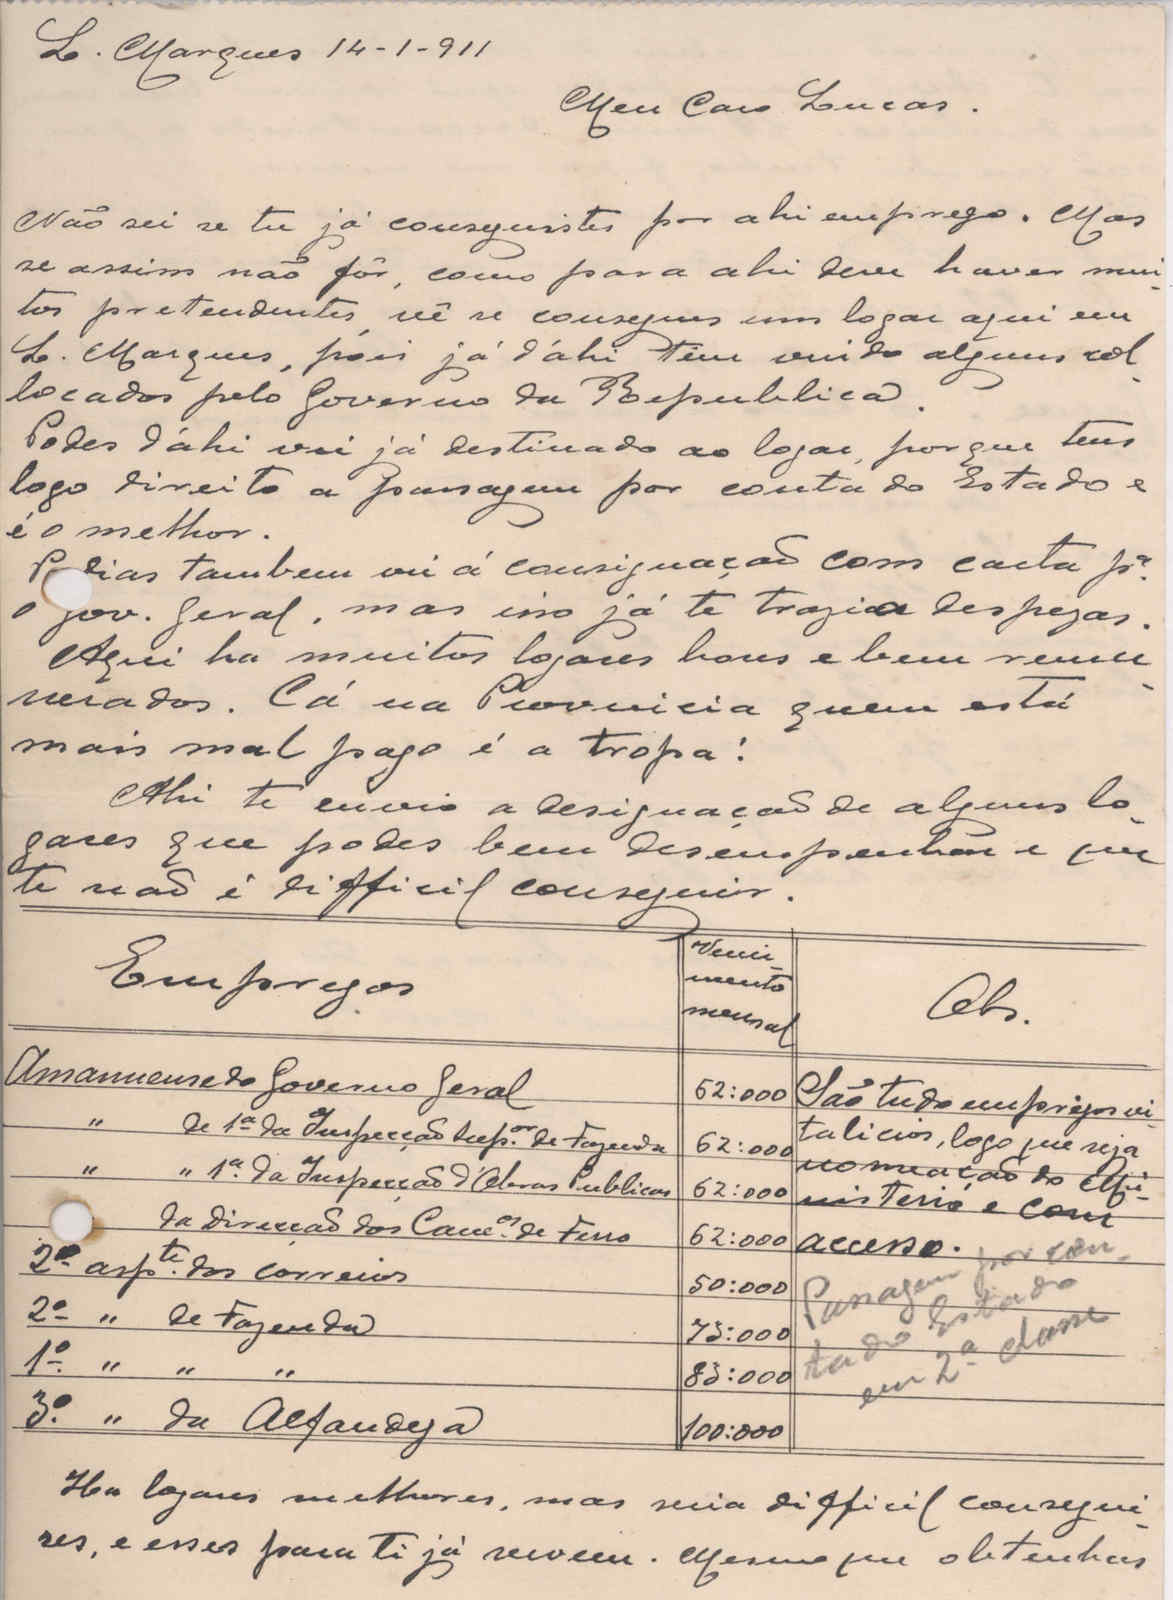 L. Marques 14-1-911
Meu Caro Lucas.
Não sei se tu já conseguistes por ahi emprego. Mas
se assim não fôr, como para ahi deve haver mui-
tos pretendentes, vê se consegues um logar aqui em
L. Marques, pois já d'áhi têm vindo alguns col-
locados pelo Governo da Republica.
Podes d'áhi vir já destinado ao logar, porque tens
logo direito a passagem por conta do Estado e
é o melhor.
Podias tambem vir á consignação com carta pª
o gov. geral, mas isso já te trazia despezas.
Aqui ha muitos logares bons e bem remu-
nerados. Cá na Provincia quem está
mais mal pago é a tropa!
Ahi te envio a designação de alguns lo-
gares que podes bem desempenhar e que
te não é difficil conseguir.
Empregos
Venci-
mento
mensal
Obs.
Amanuense do Governo Geral 62:000
" de 1ª da Inspecção Sup.or de Fazenda 62:000
" " 1ª. da Inspecção d'Obras Publicas 62:000
da direcção dos Cam.os de Ferro 62:000
2º aspte. dos correios 50:000
2º " de Fazenda 75:000
1º. " " " 85:000
3º. " da Alfandega 100:000
São tudo empregos vi-
talicios, logo que seja
nomeação do Mi-
nisterio e com
accesso.
Passagem por con-
ta do Estado
em 2ª classe
Ha logares melhores, mas seria difficil consegui-
res, e esses para ti já servem. Mesmo que obtenhas